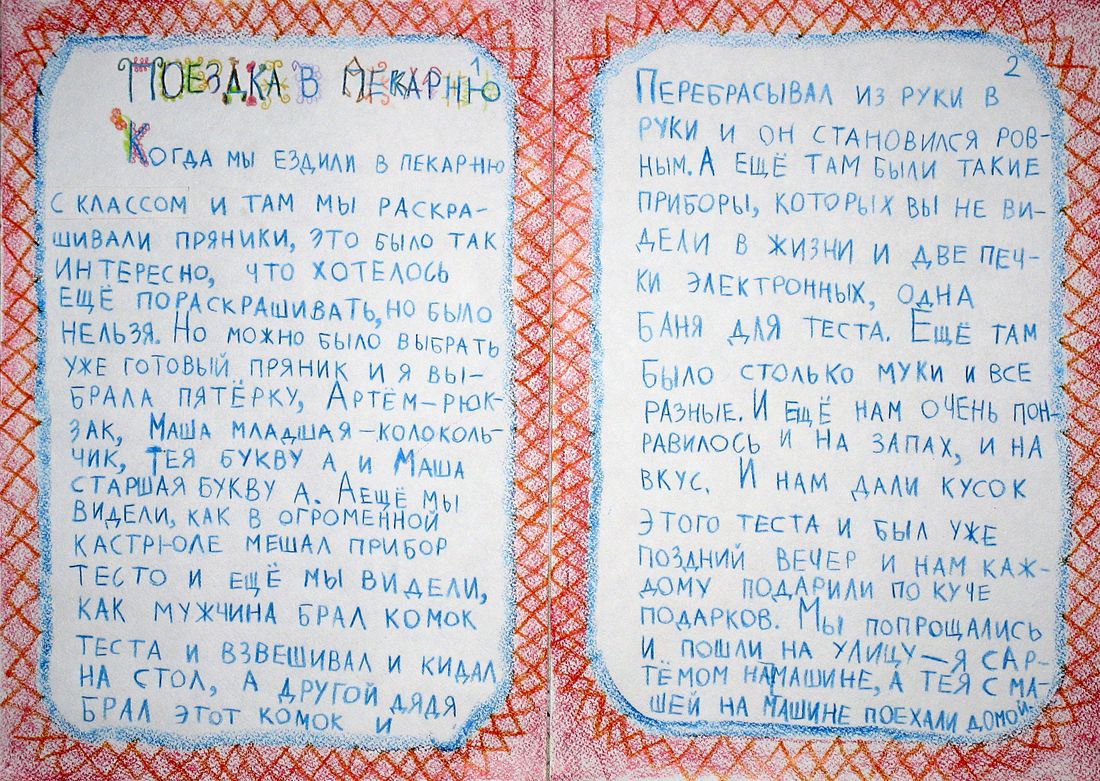 1
Поездка в Пекарню
Когда мы ездили в пекарню
с классом и там мы раскра-
шивали пряники, это было так
интересно, что хотелось
ещё пораскрашивать, но было
нельзя. Но можно было выбрать
уже готовый пряник и я вы-
брала пятёрку, Артём-рюк-
зак, Маша младшая-колоколь-
чик, Тея букву а и Маша
старшая букву а. Аещё мы
видели, как в огроменной
кастрюле мешал прибор
тесто и ещё мы видели,
как мужчина брал комок
теста и взвешивал и кидал
на стол, а другой дядя
брал этот комок и
2
Перебрасывал из руки в
руки и он становился ров-
ным. А ещё там были такие
приборы, которых вы не ви-
дели в жизни и две печ-
ки электронных, одна
баня для теста. Ещё там
было столько муки и все
разные. И ещё нам очень пон-
равилось и на запах, и на
вкус. И нам дали кусок
этого теста и был уже
поздний вечер и нам каж-
дому подарили по куче
подарков. Мы попрощались
и пошли на улицу – я с Ар-
тёмом на машине, а Тея с Ма-
шей на машине поехали домой.